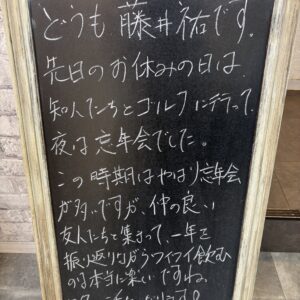 どうも藤井祐です。
先日のお休みの日は
知人たちとゴルフに行って
夜は忘年会でした。
この時期はやはり忘年会
が多いですが、仲の良い
友人たちと集まって、一年を
振り返りながらワイワイ飲む
のは本当に楽しいですね。